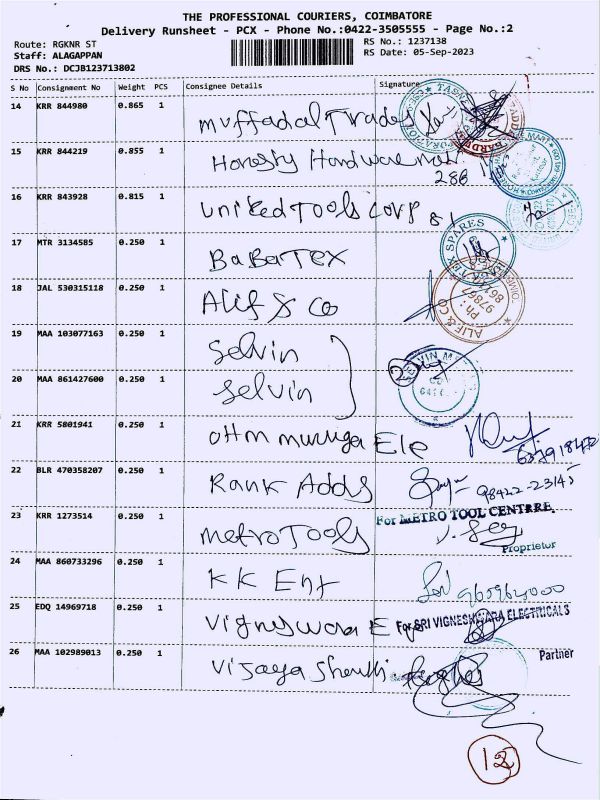 THE PROFESSIONAL COURIERS, COIMBATORE
Delivery Runsheet - PCX - Phone No.:0422-3505555 - Page No.:2
Route: RGKNR ST
RS No.: 1237138
Staff: ALAGAPPAN
RS Date: 05-Sep-2023
DRS No.: DCJB123713802
S No Consignment No Weight PCS Consignee Details Signature
14 KRR 844980 0.865 1 Muffadal Trades
15 KRR 844219 0.855 1 Honesty Hardware mart
286
16 KRR 843928 0.815 1 United Tools Corp
17 MTR 3134585 0.250 1 BaBaTex
SPARES
18 JAL 530315118 0.250 1 Alif & Co
ALIF & CO
19 MAA 103077163 0.250 1 Selvin
20 MAA 861427600 0.250 1 Selvin
2
21 KRR 5801941 0.250 1 Ohm muruga Ele
22 BLR 470358207 0.250 1 Rank Adds
98422-23145
23 KRR 1273514 0.250 1 Metro Tools
For METRO TOOL CENTRRE.
Proprietor
24 MAA 860733296 0.250 1 KK Ent
25 EDQ 14969718 0.250 1 Vigneswara E
For SRI VIGNESHWARA ELECTRICALS
Partner
26 MAA 102989013 0.250 1 Vijaya
12